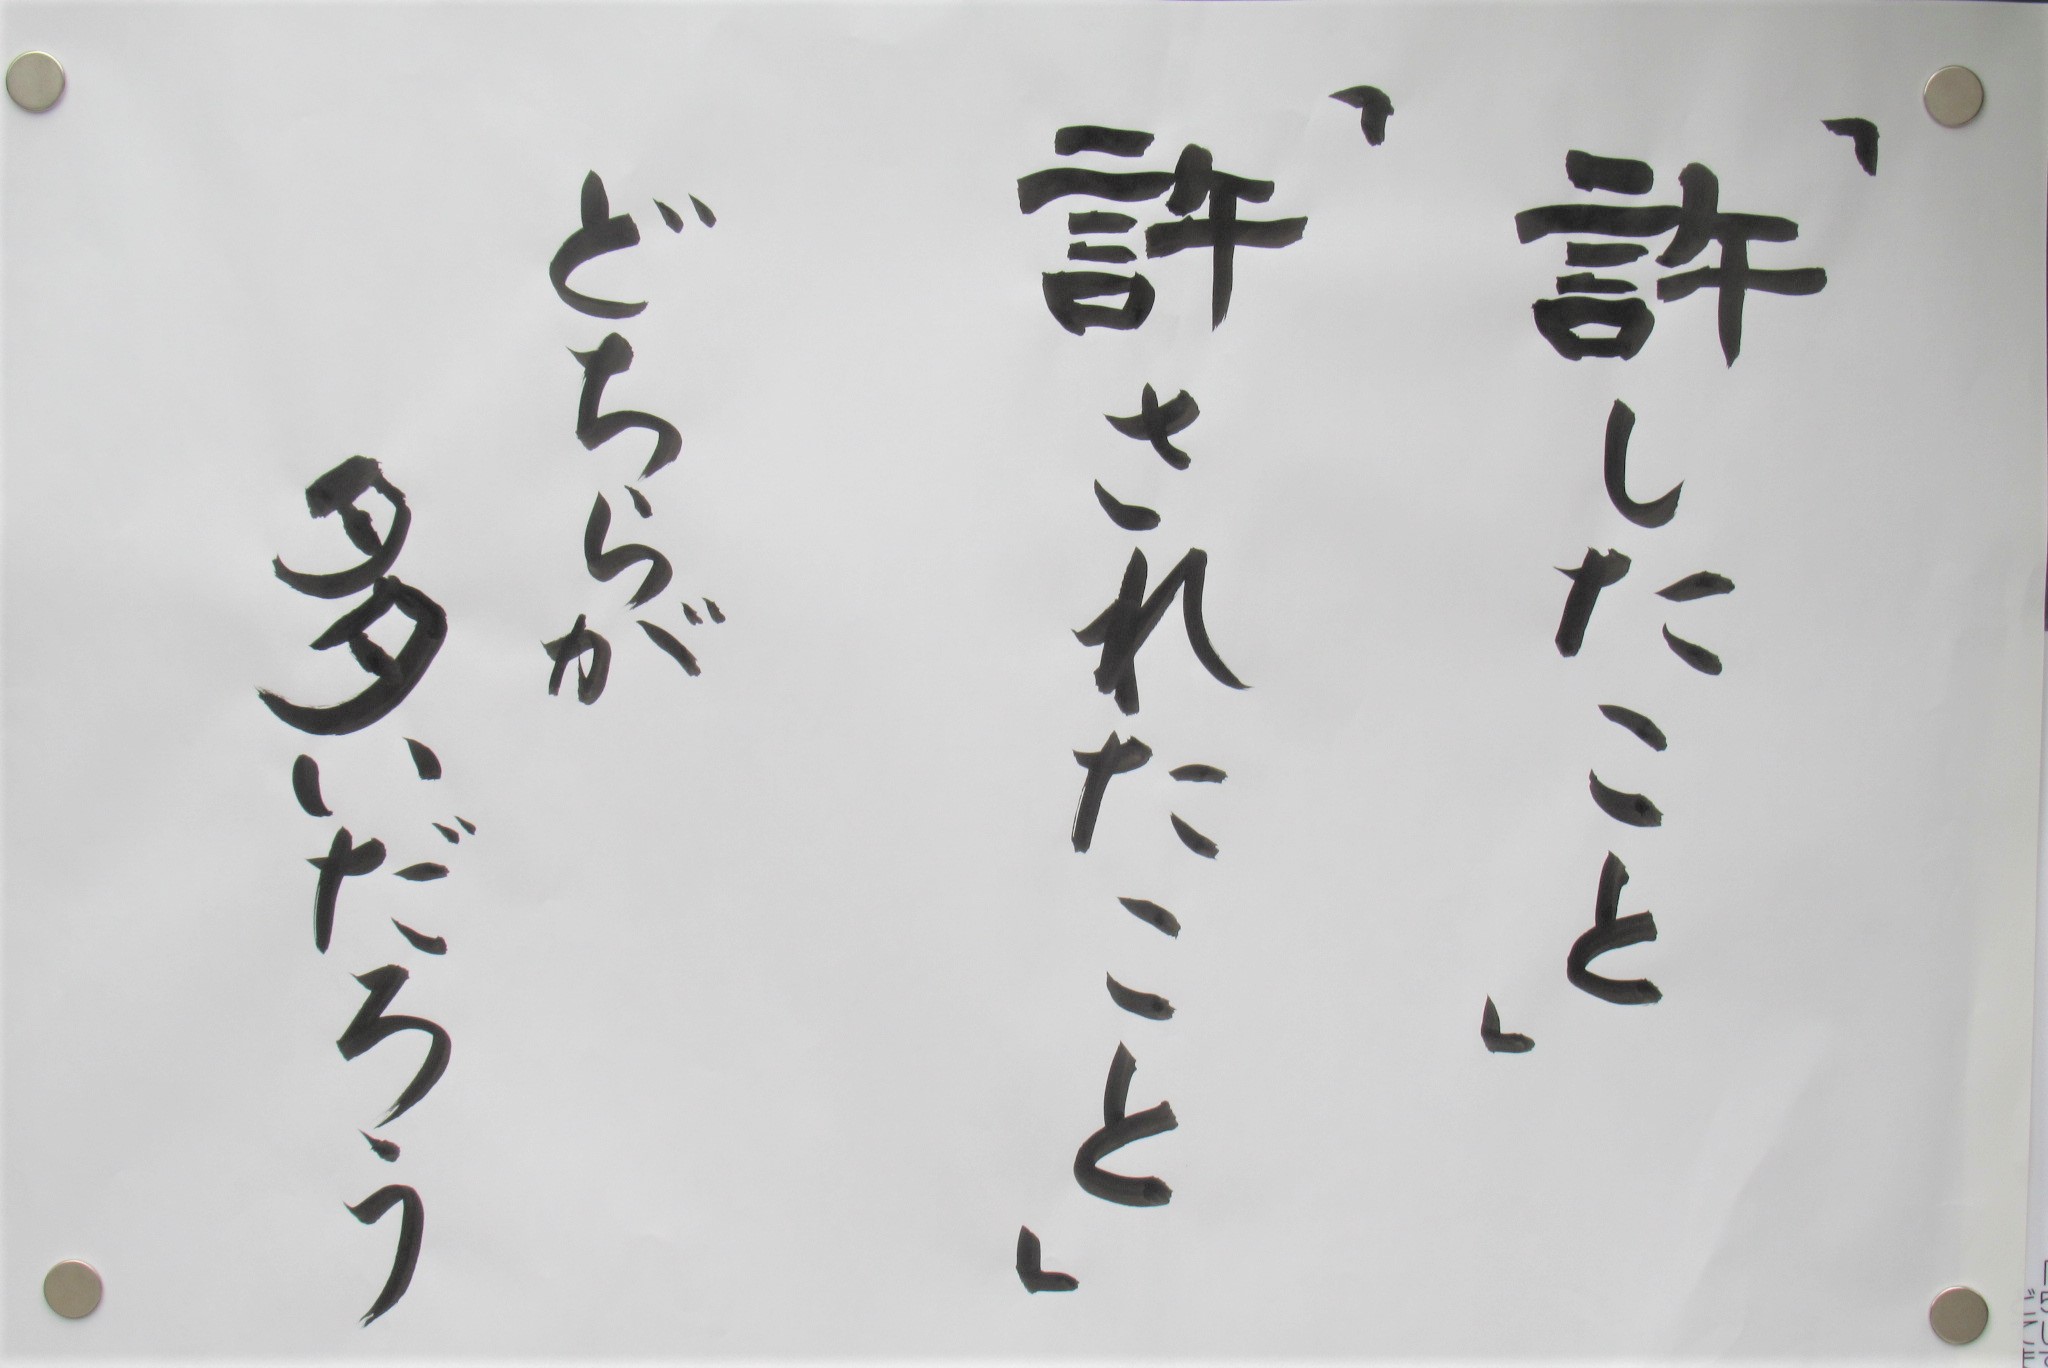 「許したこと」
「許されたこと」
どちらが
多いだろう